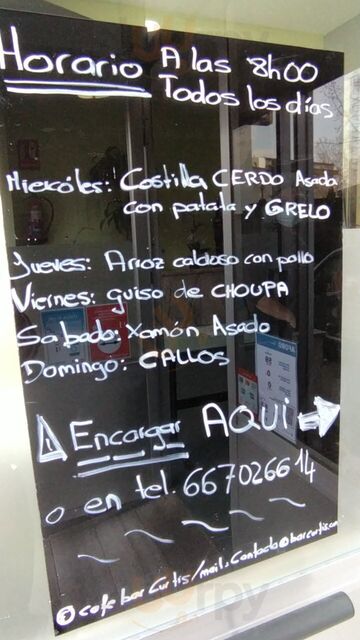 Horario A las 8h00
Todos los días
Miercóles: Costilla CERDO Asada
con patata y GRELO
Jueves: Arroz caldoso con pollo
Viernes: guiso de CHOUPA
Sabado: Xamón Asado
Domingo: CALLOS
Encargar AQUI
o en tel. 667026614
cafe bar Curtis/mail. Contacto@barcurtis.com